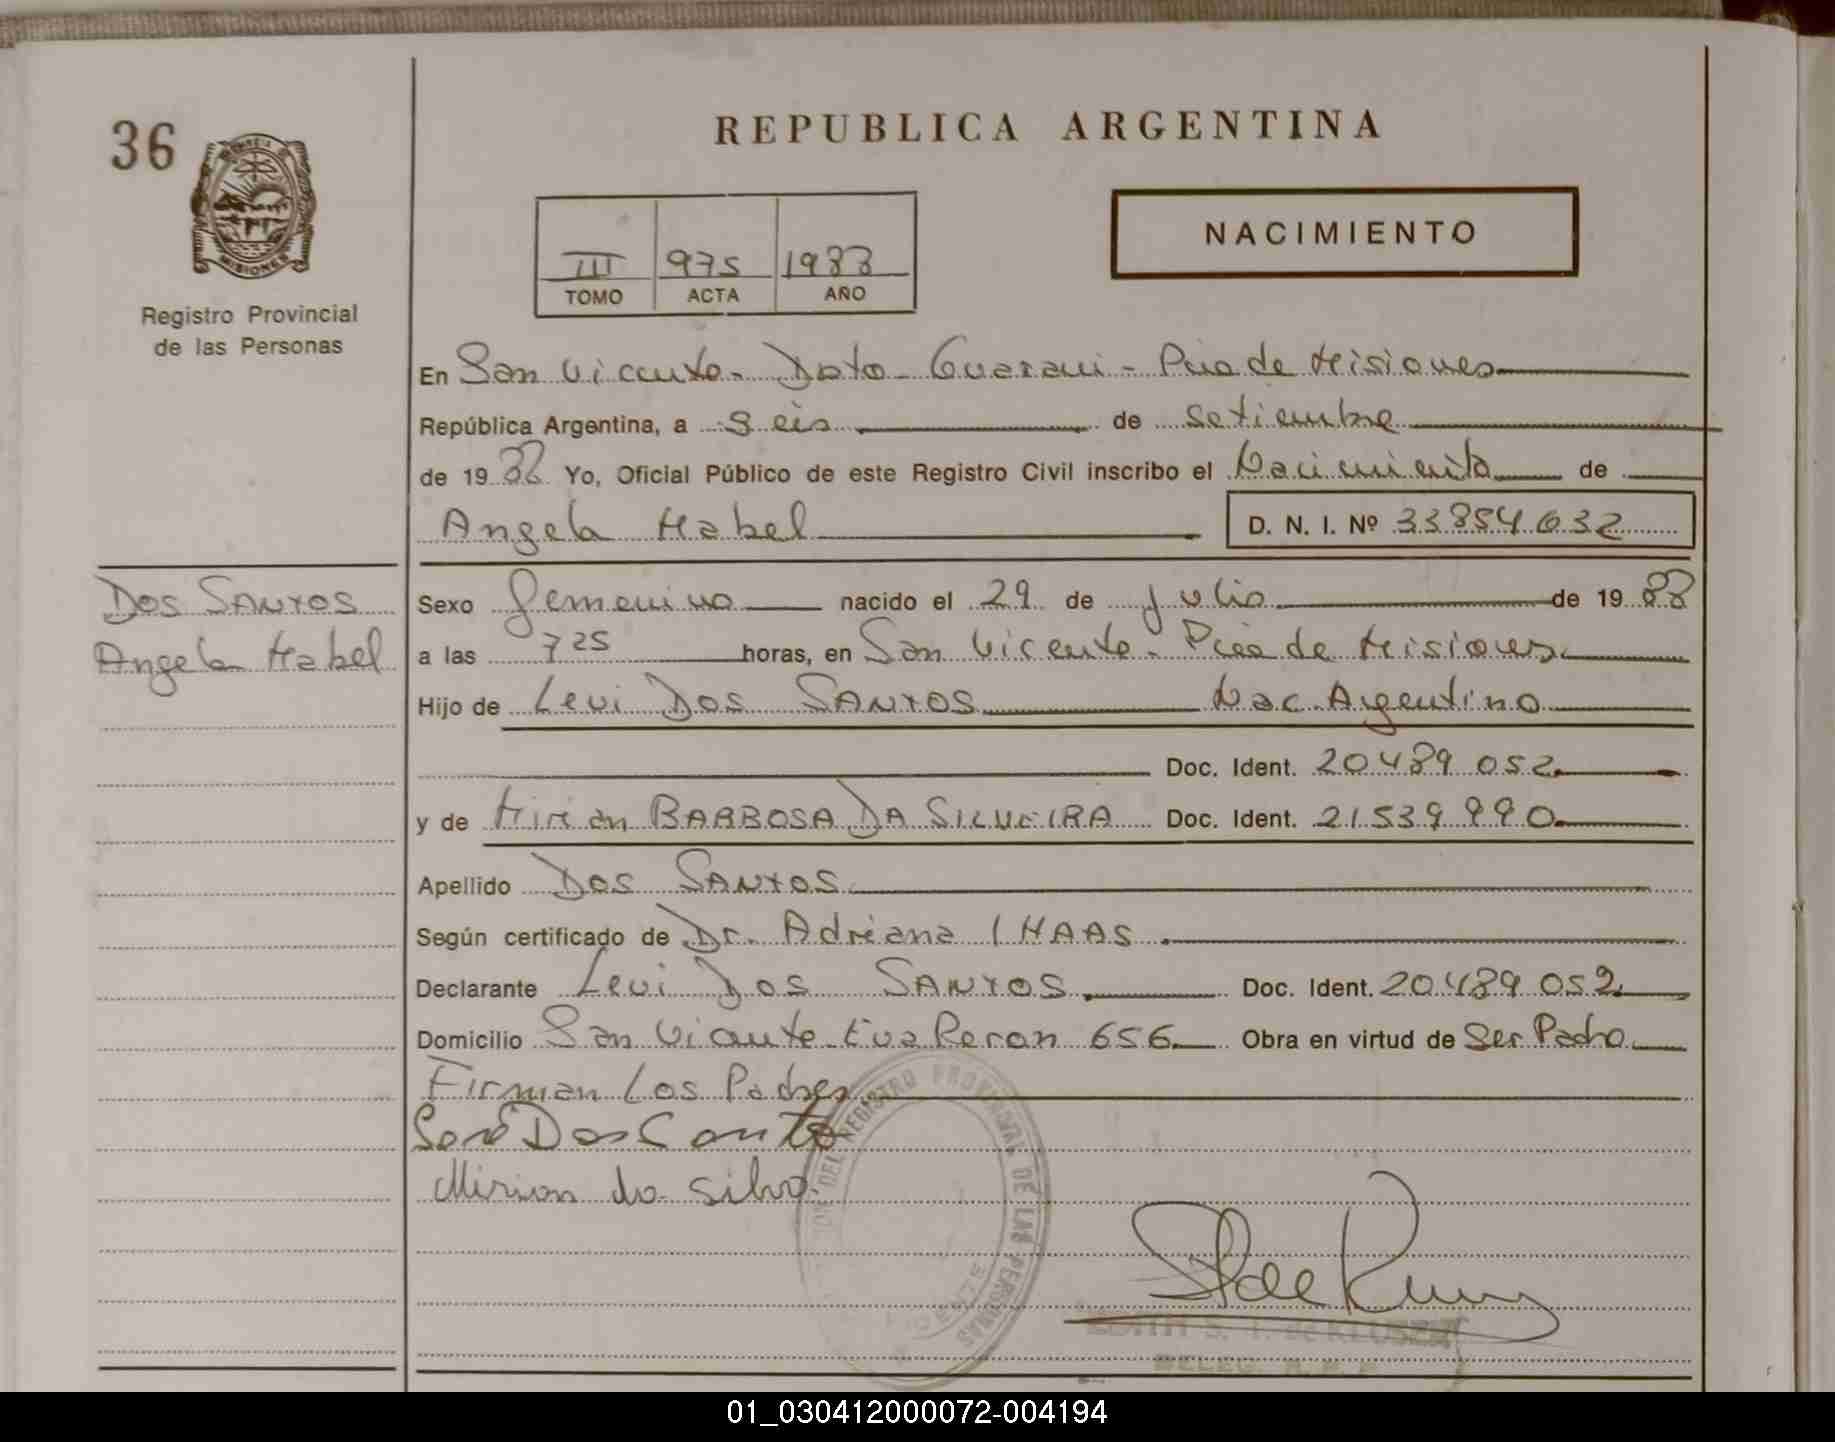 REPUBLICA ARGENTINA
36
NACIMIENTO
III 975 1988
TOMO ACTA AÑO
MISIONES
Registro Provincial
de las Personas
En San Vicente - Dpto Guarani - Pcia de Misiones
República Argentina, a seis de setiembre
de 1988 Yo, Oficial Público de este Registro Civil inscribo el Nacimiento de
Angela Mabel D. N. I. Nº 33854632
Dos SANTOS
Angela Mabel
Sexo Femenino nacido el 29 de Julio de 1988
a las 7 25 horas, en San Vicente - Pcia de Misiones
Hijo de Levi Dos SANTOS Nac. Argentino
Doc. Ident. 20489 052
y de Mirian BARBOSA DA SILVEIRA Doc. Ident. 21539990
Apellido Dos SANTOS
Según certificado de Dr. Adriana I HAAS
Declarante Levi Dos SANTOS Doc. Ident. 20489 052
Domicilio San Vicente - Eva Peron 656 Obra en virtud de Ser Padre
Firman Los Padres
Dos Santo
Mirian da silva
DEL REGISTRO PROVINCIAL DE LAS PERSONAS
EDITH S. T. de
DELEG. R. P. P.
01_030412000072-004194